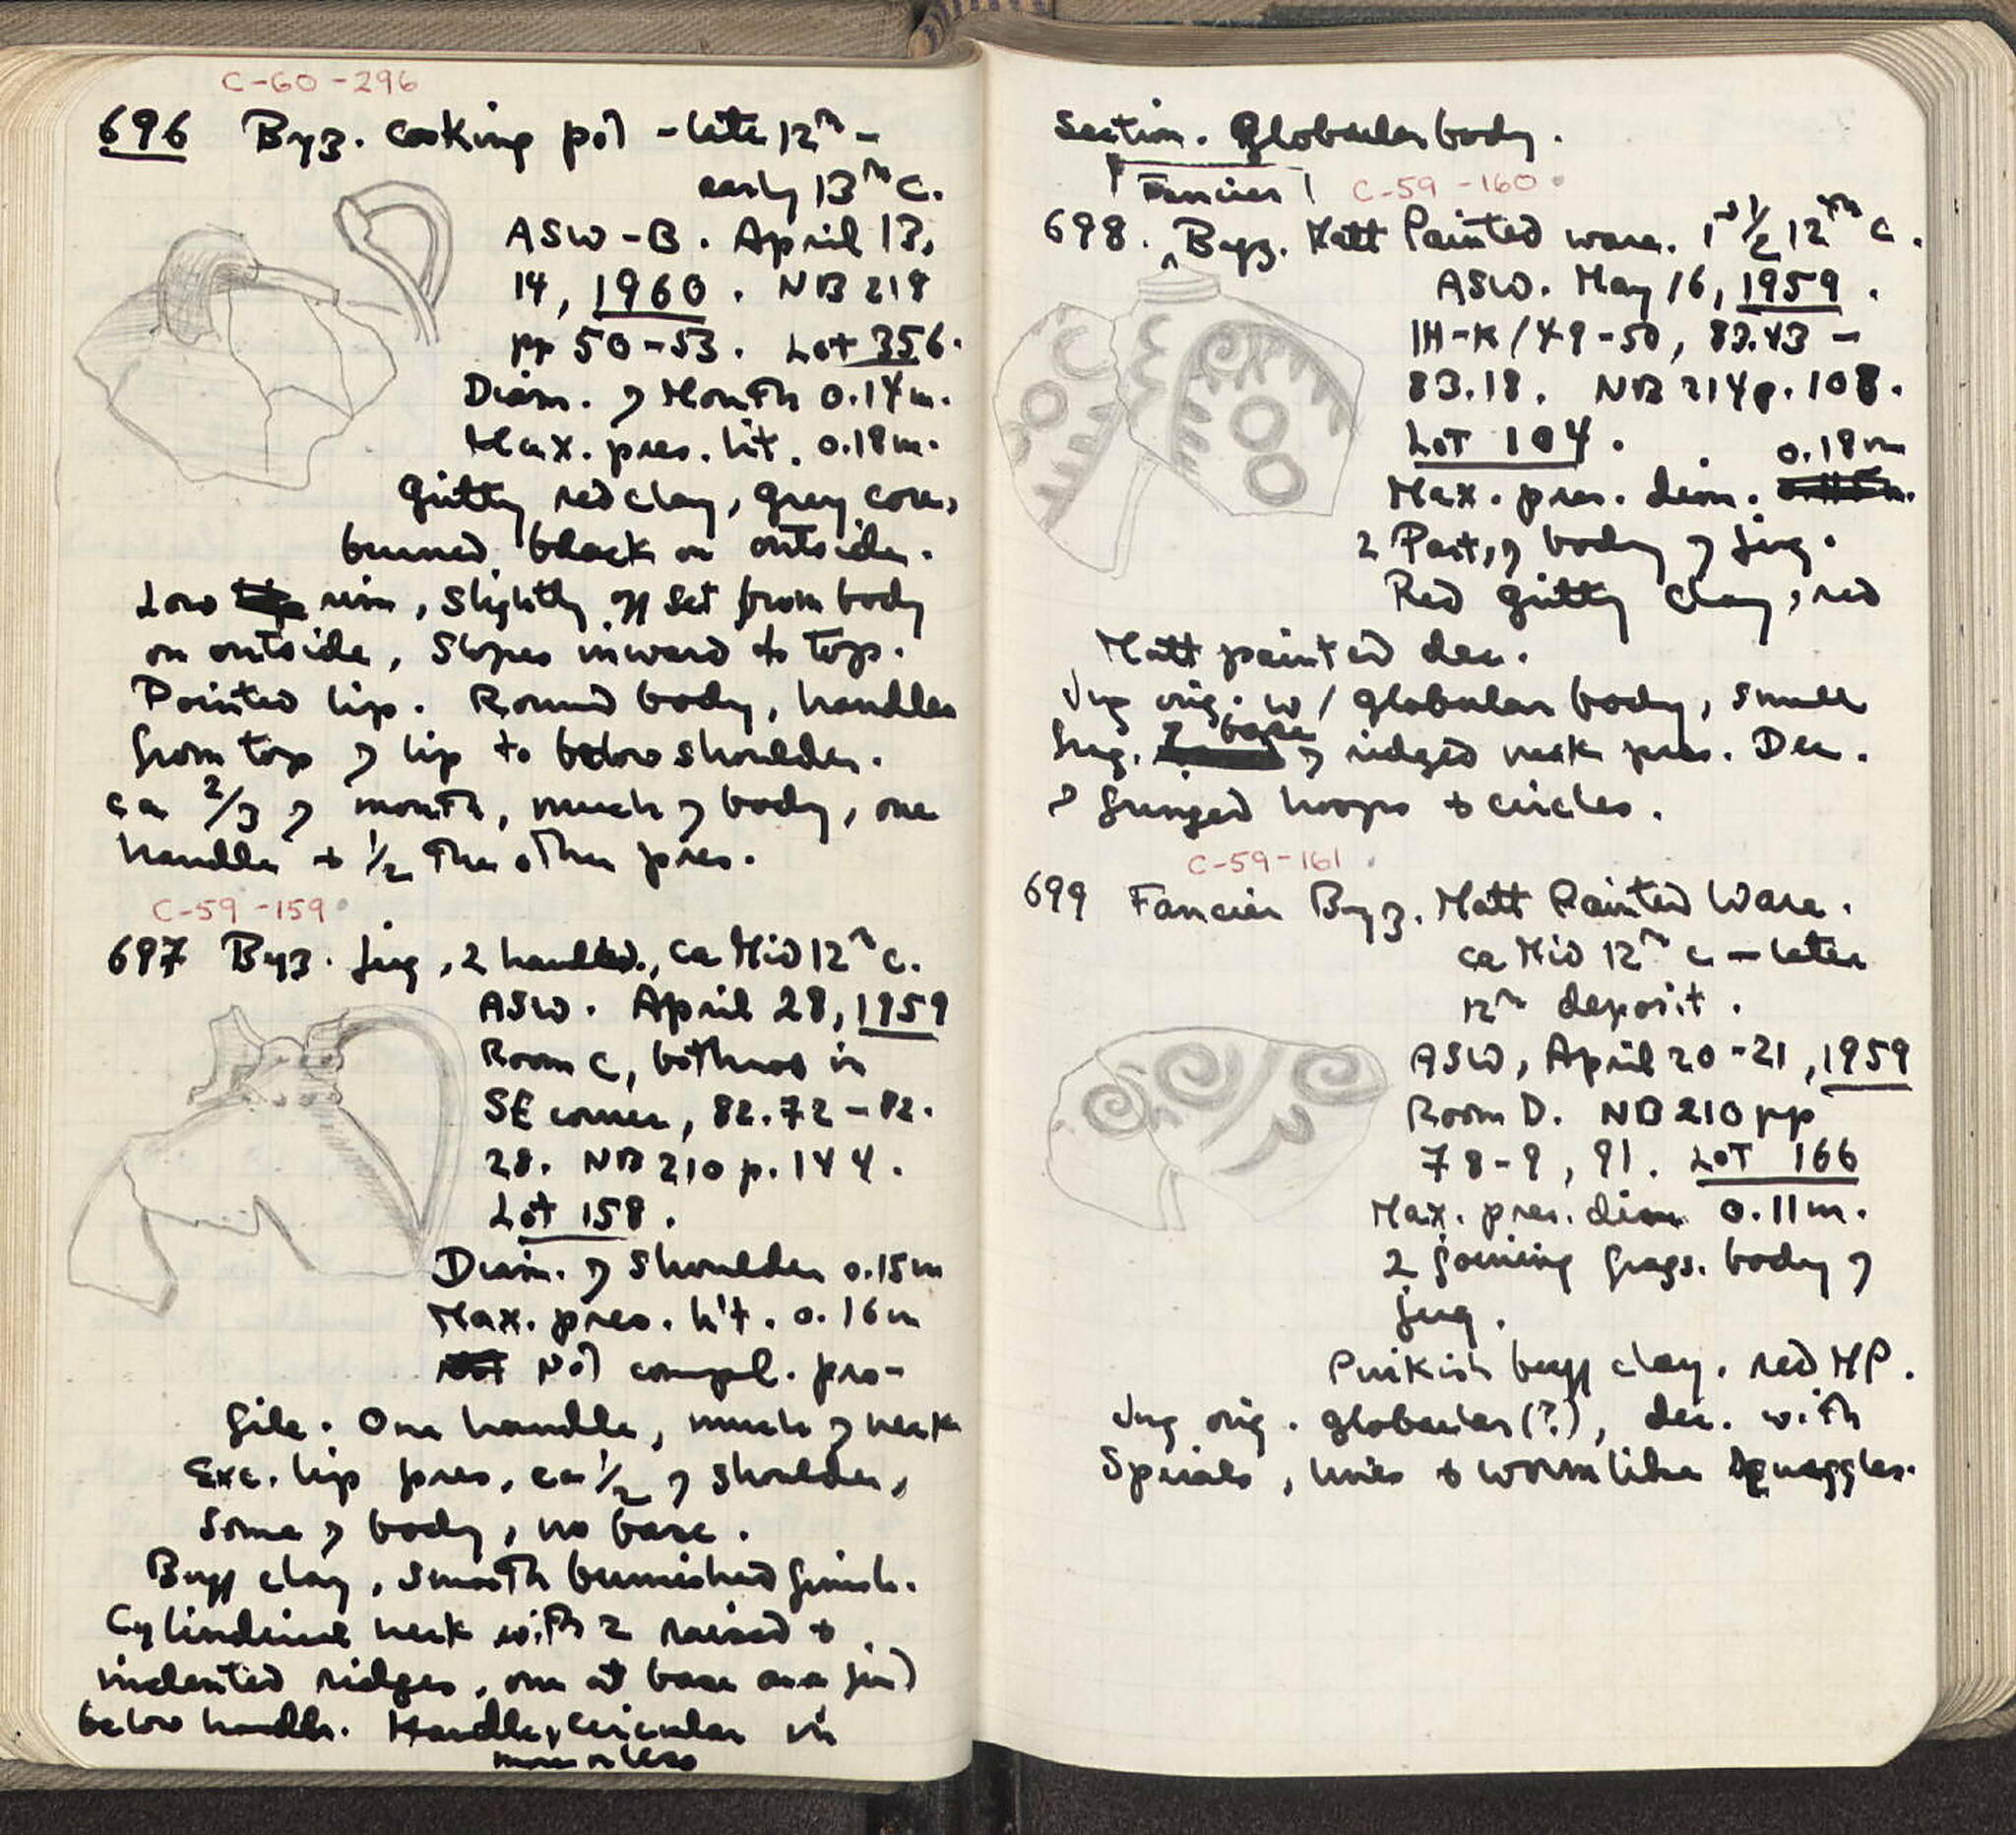 C-60-296
696 Byz. cooking pot - late 12th -
early 13th C.
ASW-B. April 13,
14, 1960. NB 219
pp 50-53. Lot 356.
Diam. of Mouth 0.14m.
Max. pres. ht. 0.18m.
Gritty red clay, grey core,
burned black on outside.
Low rim, slightly off set from body
on outside, slopes inward to top.
Pointed lip. Round body, handles
from top of lip to below shoulder.
ca 2/3 of mouth, much of body, one
handle + 1/2 the other pres.
C-59-159
697 Byz. jug, 2 handled, ca Mid 12th c.
ASW. April 28, 1959
Room C, bothros in
SE corner, 82.72-82.
28. NB 210 p. 144.
Lot 158.
Diam. of shoulder 0.15m
Max. pres. h't. 0.16m
Not compl. pro-
file. One handle, much of neck
exc. lip pres, ca 1/2 of shoulder,
some of body, no base.
Buff clay, smooth burnished finish.
Cylindrical neck with 2 raised +
indented ridges, one at base one just
below handle. Handle, circular in
more or less
section. Globular body.
Fancier
C-59-160
698. Byz. Matt Painted ware. 1st 1/2 12th c.
ASW. May 16, 1959.
IH-K/49-50, 83.43-
83.18. NB 214 p. 108.
Lot 104.
0.18m
Max. pres. dim.
2 Parts, of body of jug.
Red gritty clay, red
Matt painted dec.
Jug orig. w/ globular body, small
frag. of base of ridged neck pres. Dec.
of fringed hoops + circles.
C-59-161
699 Fancier Byz. Matt Painted Ware.
ca Mid 12th c - later
12th deposit.
ASW, April 20-21, 1959
Room D. NB 210 pp
78-9, 91. Lot 166
Max. pres. dim 0.11m.
2 joining frags. body of
jug.
Pinkish buff clay. red MP.
Jug orig. globular(?), dec. with
Spirals, lines + wormlike squiggles.